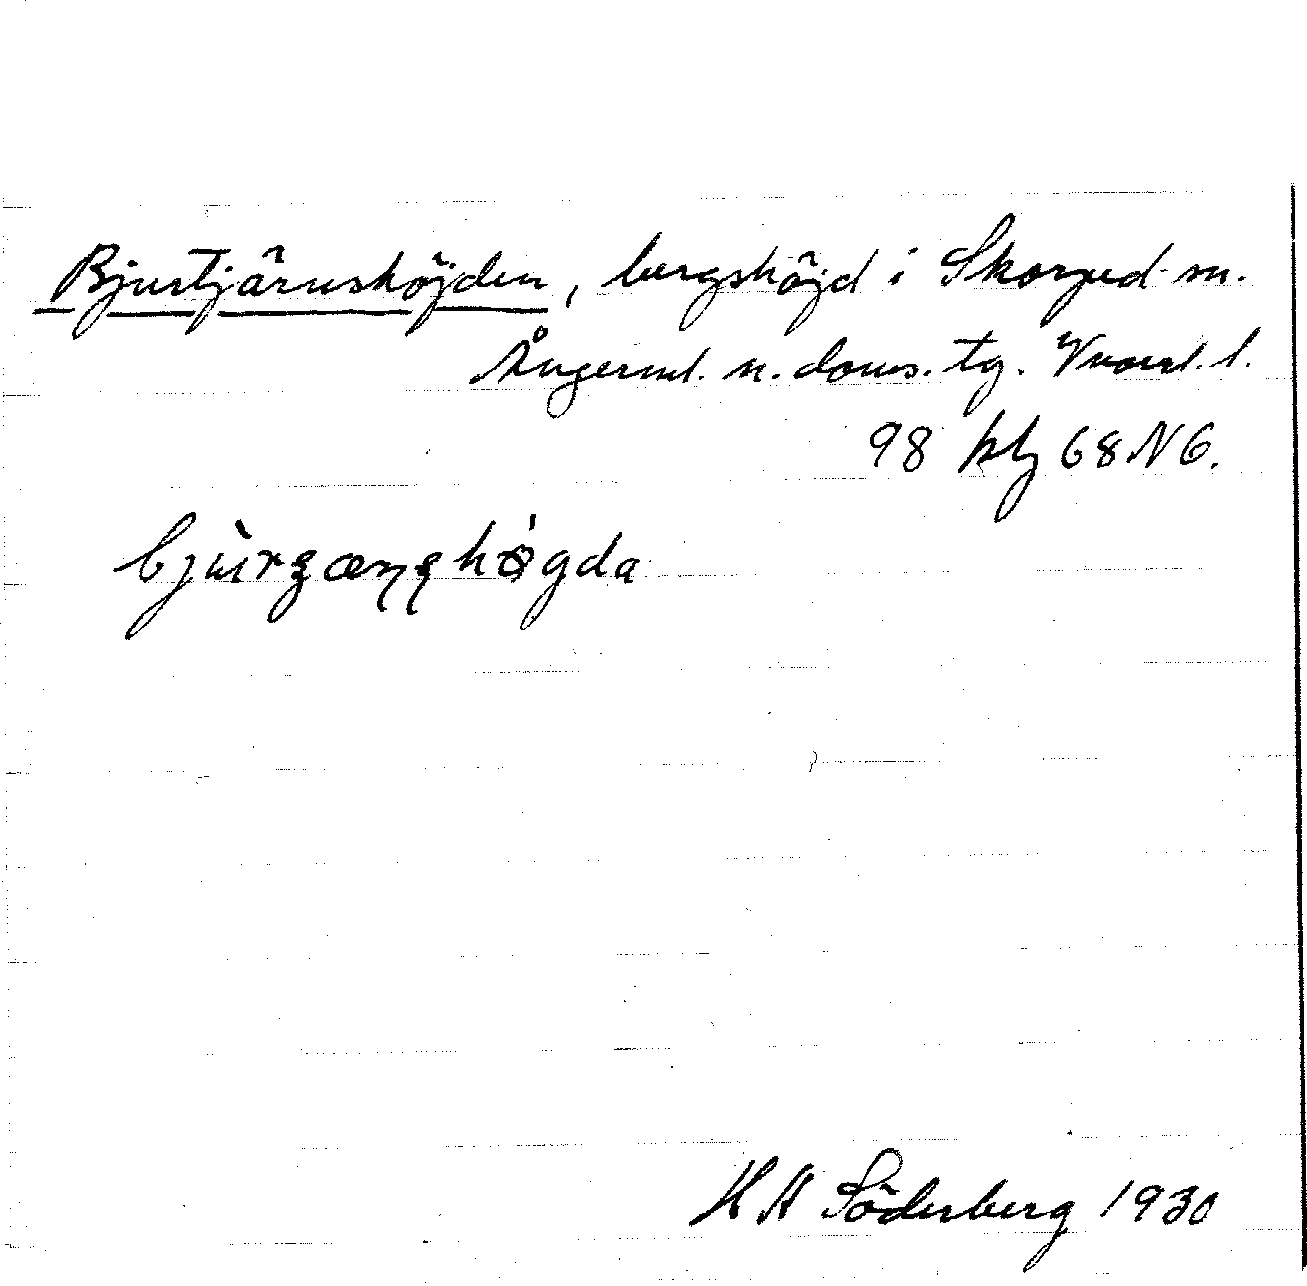 Bjurtjärnshöjden, bergshöjd i Skorped sn.
Ångerml. n. doms. tg. Vnorrl. l.
98 kbl 68 NG.
bjùrʂæɳʂhø̀gda
H A Söderberg 1930